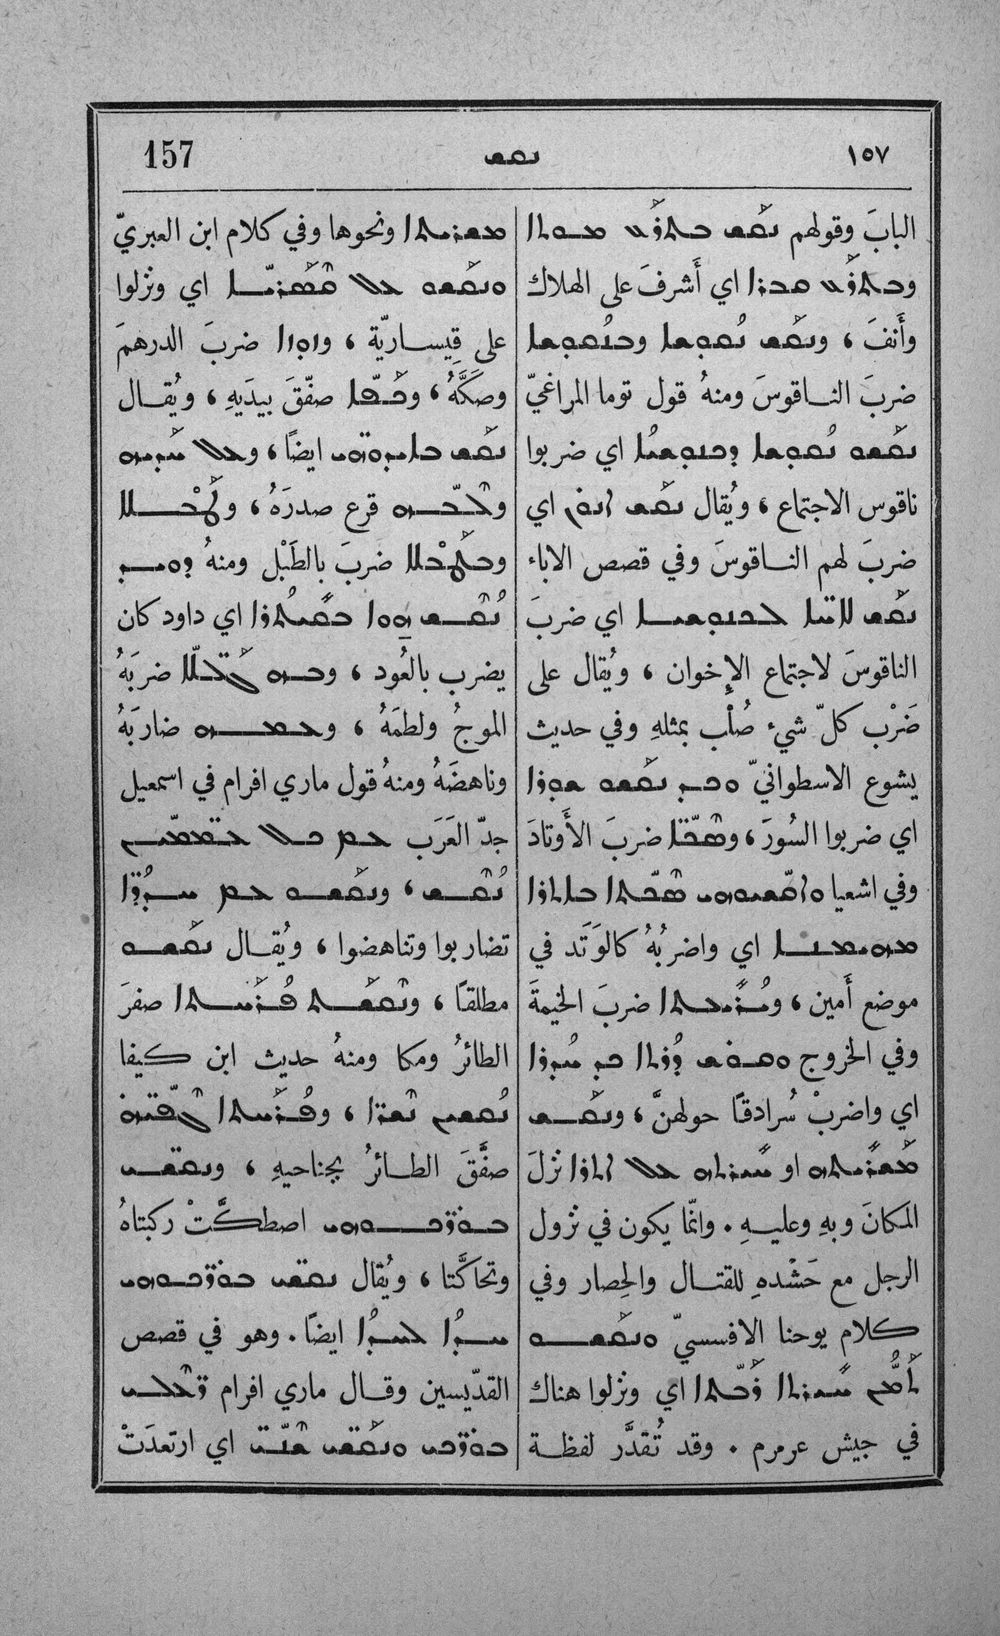 ١٥٧ ܢܩܫ 157
البابَ وقولهم ܢܩܫ ܒܬܪܥ ܡܘܬܐ
وܒܬܪܥ ܩܒܪܐ اي أَشرفَ على الهلاك
وأَنفَ ، وܢܩܫ ܢܩܘܫܐ وܒܢܩܘܫܐ
ضربَ الناقوسَ ومنهُ قول توما المراغيّ
ܢܩܫܘ ܢܩܘܫܐ ܕܟܢܘܫܝܐ اي ضربوا
ناقوس الاجتماع ، ويُقال ܢܩܫ ܐܢܘܢ اي
ضربَ لهم الناقوسَ وفي قصص الاباء
ܢܩܫ ܠܐܚ̈ܐ ܠܟܢܘܫܝܐ اي ضربَ
الناقوسَ لاجتماع الإِخوان ، ويُقال على
ضَرْب كلّ شيء صُلْب بمثلهِ وفي حديث
يشوع الاسطوانيّ ܘܟܕ ܢܩܫܘ ܫܘܪܐ
اي ضربوا السُورَ ، وܣܟ̈ܐ ضربَ الأَوتادَ
وفي اشعيا ܘܐܩܫܝܘܗܝ ܣܟܬܐ ܒܐܬܪܐ
ܡܗܝܡܢܐ اي واضربْهُ كالوَتَد في
موضع أَمين ، وܝܪܝܥܬܐ ضربَ الخيمةَ
وفي الخروج ܘܩܘܫ ܕܪܬܐ ܟܕ ܚܕܪܐ
اي واضربْ سُرادقًا حولهنَّ ، وܢܩܫ
ܡܫܪܝܬܗ او ܚܝܪܬܗ ܥܠ ܐܬܪܐ نزلَ
المكانَ وبهِ وعليهِ . وانّما يكون في نزول
الرجل مع حَشْدهِ للقتال والحِصار وفي
كلام يوحنا الافسسيّ ܘܢܩܫܘ
ܬܡܢ ܚܝܪܬܐ ܪܒܬܐ اي ونزلوا هناك
في جيش عرمرم . وقد تُقدَّر لفظة
ܡܫܪܝܬܐ ونحوها وفي كلام ابن العبريّ
ܘܢܩܫܘ ܥܠ ܩܣܪܝܐ اي ونزلوا
على قِيساريّة ، وܙܘܙܐ ضربَ الدرهمَ
وصَكَّهُ ، وܟܦ̈ܐ صفّقَ بيدَيهِ ، ويُقال
ܢܩܫ ܒܐܝܕ̈ܘܗܝ ايضًا ، وܥܠ ܚܕܝܗ
وܠܒܗ قرع صدرَهُ ، وܛܒܠܐ
وܒܛܒܠܐ ضربَ بالطَبْل ومنهُ ܕܘܝܕ
ܢܩܫ ܗܘܐ ܒܟܢܪܐ اي داود كان
يضرب بالعُود ، وܒܗ ܓܠ̈ܠܐ ضربَهُ
الموجُ ولطمَهُ ، وܥܡܗ ضاربَهُ
وناهضَهُ ومنهُ قول ماري افرام في اسمعيل
جدّ العَرَب ܥܡ ܟܠ ܥܡ̈ܡܝܢ
ܢܩܫ ، وܢܩܫܘ ܥܡ ܚܕ̈ܕܐ
تضاربوا وتناهضوا ، ويُقال ܢܩܫܘ
مطلقًا ، وܢܩܫܬ ܦܪܚܬܐ صفرَ
الطائرُ ومكا ومنهُ حديث ابن كيفا
، وܦܪܚܬܐ ܓܦ̈ܝܗ
صفَّقَ الطائرُ بجناحيهِ ، وܢܩܫ̈ܝ
ܒܘܪ̈ܟܘܗܝ اصطكَّتْ ركبتاهُ
وتحاكَّتا ، ويُقال ܢܩܫ̈ܝ ܒܘܪ̈ܟܘܗܝ
ܚܕܐ ܠܚܕܐ ايضًا . وهو في قصص
القدّيسين وقال ماري افرام ܪܥܠܝ
ܒܘܪ̈ܟܝ ܘܢܩܫ̈ܝ ܫܢ̈ܝ اي ارتعدَتْ